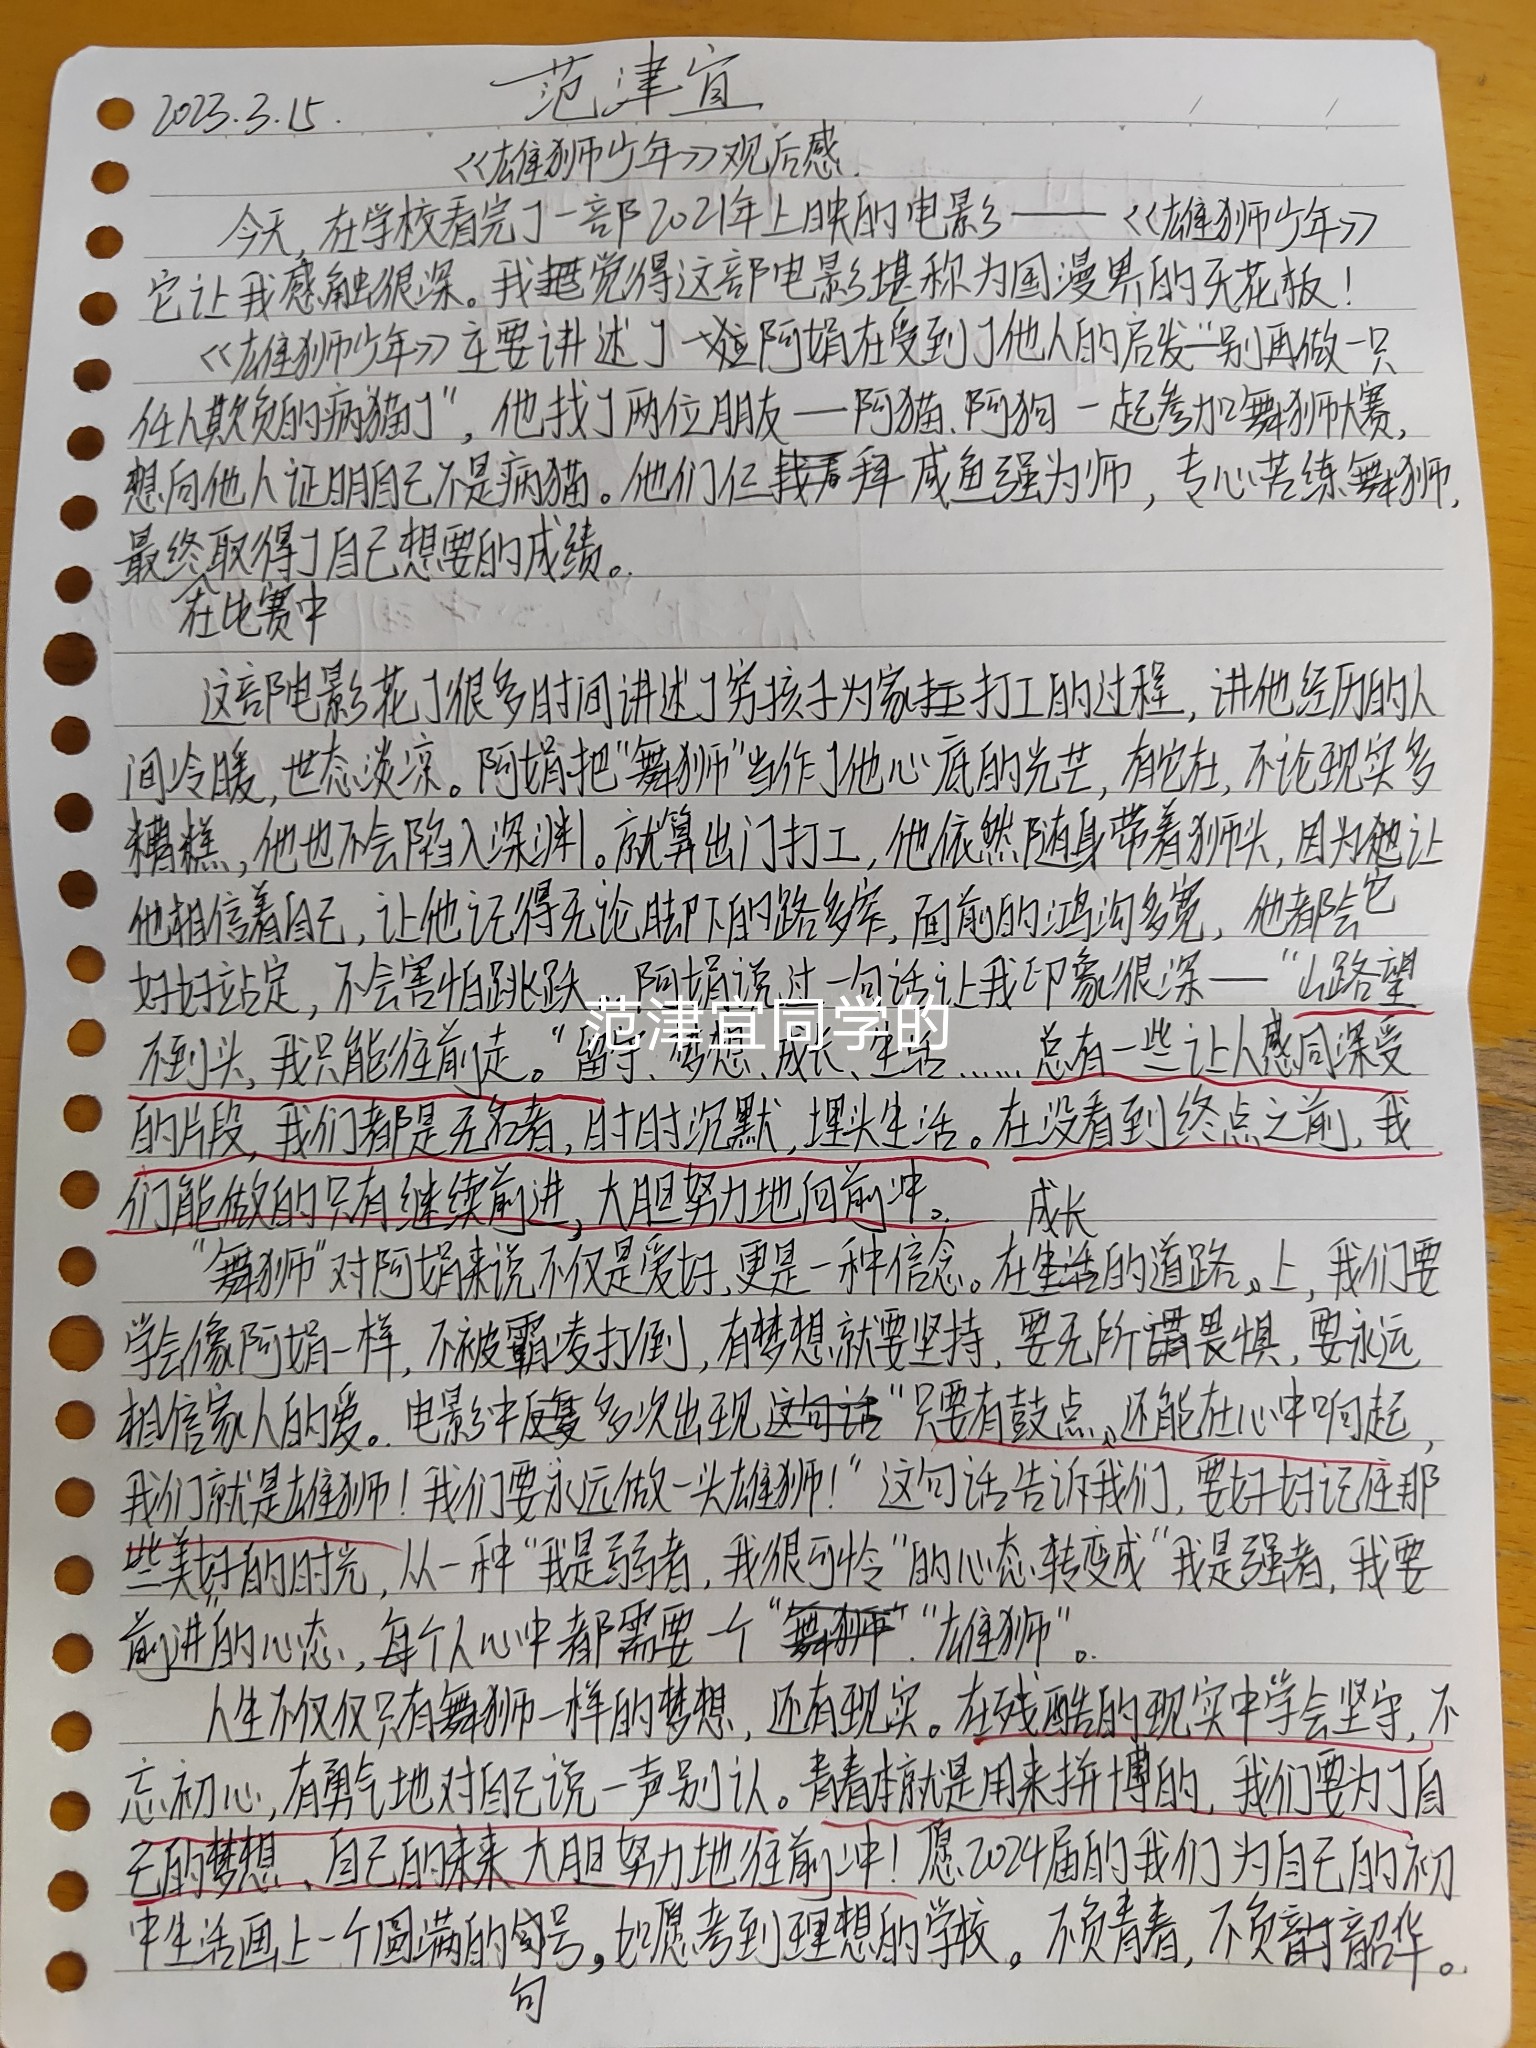 2023.3.15.
范津宜
《雄狮少年》观后感.
今天,在学校看完了一部2021年上映的电影——《雄狮少年》
它让我感触很深。我觉得这部电影堪称为国漫界的天花板!
《雄狮少年》主要讲述了阿娟在受到了他人的启发"别再做一只
任人欺负的病猫了",他找了两位朋友—阿猫、阿狗一起参加舞狮大赛,
想向他人证明自己不是病猫。他们仨拜咸鱼强为师,专心苦练舞狮,
最终在比赛中取得了自己想要的成绩。
这部电影花了很多时间讲述了穷孩子为家打工的过程,讲他经历的人
间冷暖,世态淡凉。阿娟把"舞狮"当作了他心底的光芒,有它在,不论现实多
糟糕,他也不会陷入深渊。就算出门打工,他依然随身带着狮头,因为它让
他相信着自己,让他记得无论脚下的路多窄,面前的鸿沟多宽,他都会
好好站定,不会害怕跳跃.阿娟说过一句话让我印象很深—"山路望
范津宜同学的
不到头,我只能往前走。"留守、梦想、成长、生活……总有一些让人感同深受
的片段,我们都是无名者,时时沉默,埋头生活。在没看到终点之前,我
们能做的只有继续前进,大胆努力地向前冲。
"舞狮"对阿娟来说不仅是爱好,更是一种信念。在成长的道路上,我们要
学会像阿娟一样,不被霸凌打倒,有梦想就要坚持,要无所畏惧,要永远
相信家人的爱。电影中多次出现这句话"只要有鼓点、还能在心中响起,
我们就是雄狮!我们要永远做一头雄狮!"这句话告诉我们,要好好记住那
些美好的时光,从一种"我是弱者,我很可怜"的心态转变成"我是强者,我要
前进"的心态,每个人心中都需要一个"雄狮"。
人生不仅仅只有舞狮一样的梦想,还有现实。在残酷的现实中学会坚守,不
忘初心,有勇气地对自己说一声别认。青春本就是用来拼搏的,我们要为了自
己的梦想、自己的未来大胆努力地往前冲!愿2024届的我们为自己的初
中生活画上一个圆满的句号,如愿考到理想的学校。不负青春,不负韶华。